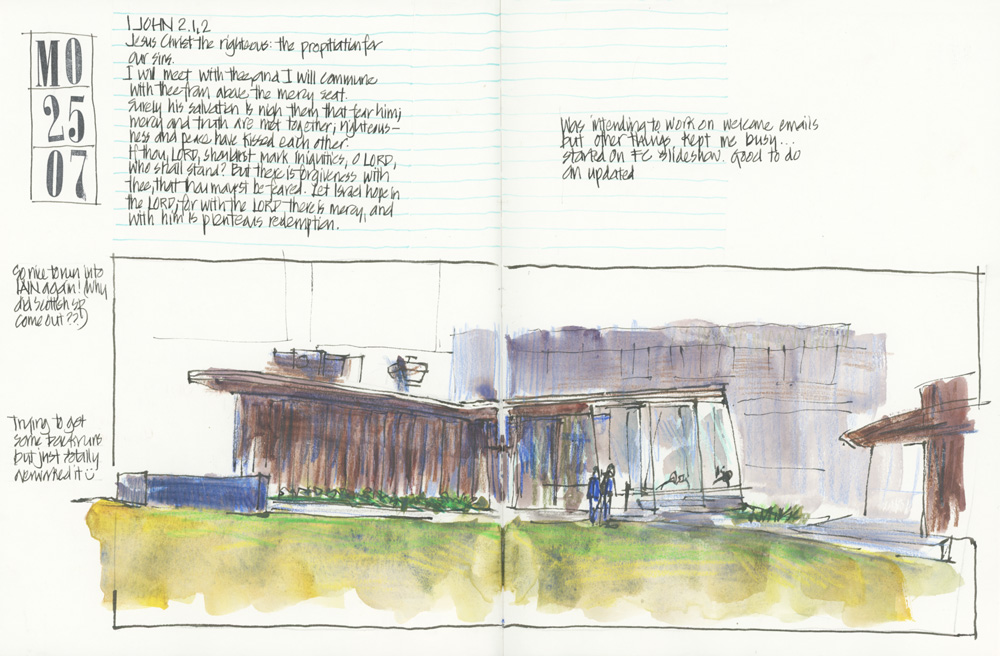 MO
25
07
1 JOHN 2.1,2
Jesus Christ the righteous: the propitiation for
our sins.
I will meet with thee, and I will commune
with thee from above the mercy seat.
Surely his salvation is nigh them that fear him;
mercy and truth are met together; righteous-
ness and peace have kissed each other.
If thou, LORD, shouldst mark iniquities, O LORD,
who shall stand? But there is forgiveness with
thee, that thou mayst be feared. Let Israel hope in
the LORD; for with the LORD there is mercy, and
with him is plenteous redemption.
Was intending to work on welcome emails
but other things kept me busy...
started on FC slideshow. Good to do
an updated
So nice to run into
IAIN again! (Why
did Scottish sp
come out??)
Trying to get
some backruns
but just totally
overworked it